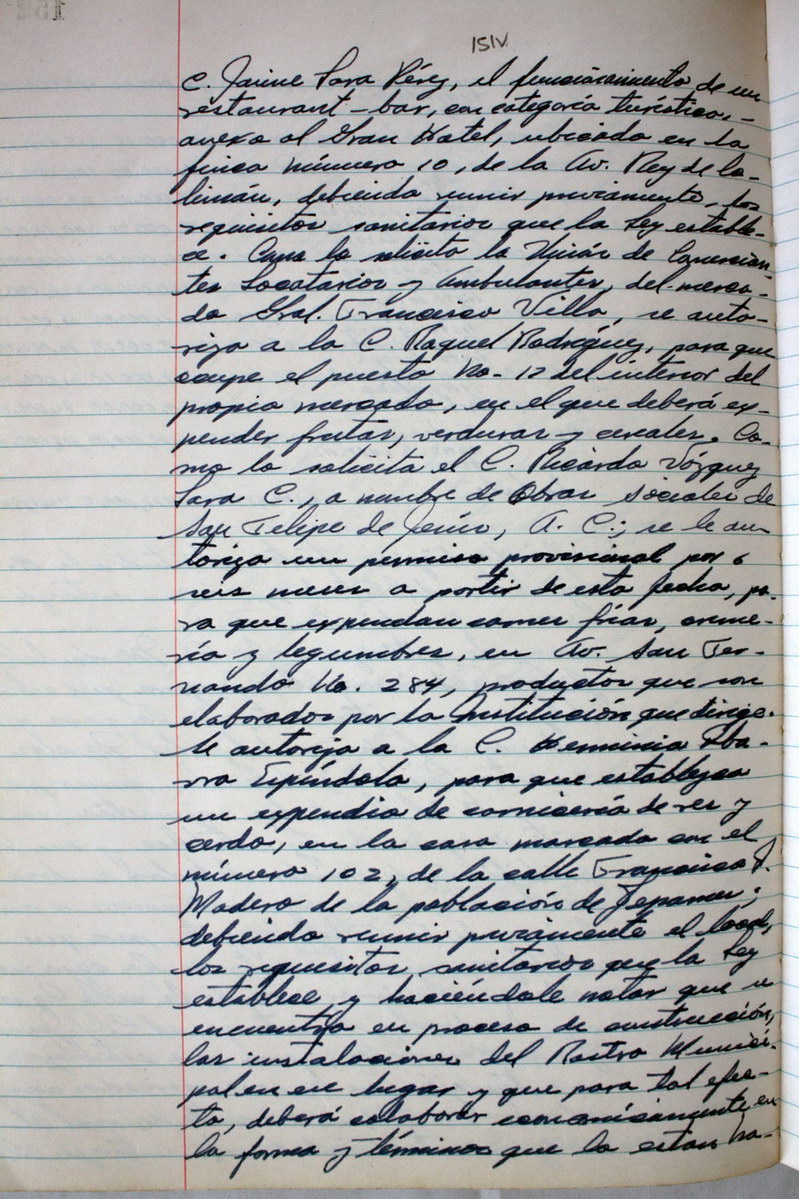 151v
C. Jaime Lara Pérez, el funcionamiento de un
restaurant-bar, con categoría turística, -
anexo al Gran Hotel, ubicado en la
finca número 10, de la Av. Rey de Co-
limán, debiendo reunir previamente, los
requisitos sanitarios que la Ley estable-
ce. Como lo solicita la Unión de Comercian-
tes Locatarios y Ambulantes, del merca-
do Gral. Francisco Villa, se auto-
riza a la C. Raquel Rodríguez, para que
ocupe el puesto No. 12 del interior del
propio mercado, en el que deberá ex-
pender frutas, verduras y cereales. Co-
mo lo solicita el C. Ricardo Vázquez
Lara C., a nombre de Obras Sociales de
San Felipe de Jesús, A. C.; se le au-
toriza un permiso provisional por 6
seis meses a partir de esta fecha, pa-
ra que expendan carnes frías, creme-
ría y legumbres, en Av. San Fer-
nando No. 284, productos que son
elaborados por la Institución que dirige.
Se autoriza a la C. Herminia Iba-
rra Espíndola, para que establezca
un expendio de carnicería de res y
cerdo, en la casa marcada con el
número 102, de la calle Francisco I.
Madero de la población de Tepames;
debiendo reunir previamente el local,
los requisitos sanitarios que la Ley
establece y haciéndole notar que se
encuentra en proceso de construcción,
las instalaciones del Rastro Munici-
pal en ese lugar y que para tal efec-
to, deberá colaborar económicamente en
la forma y términos que lo estan ha-